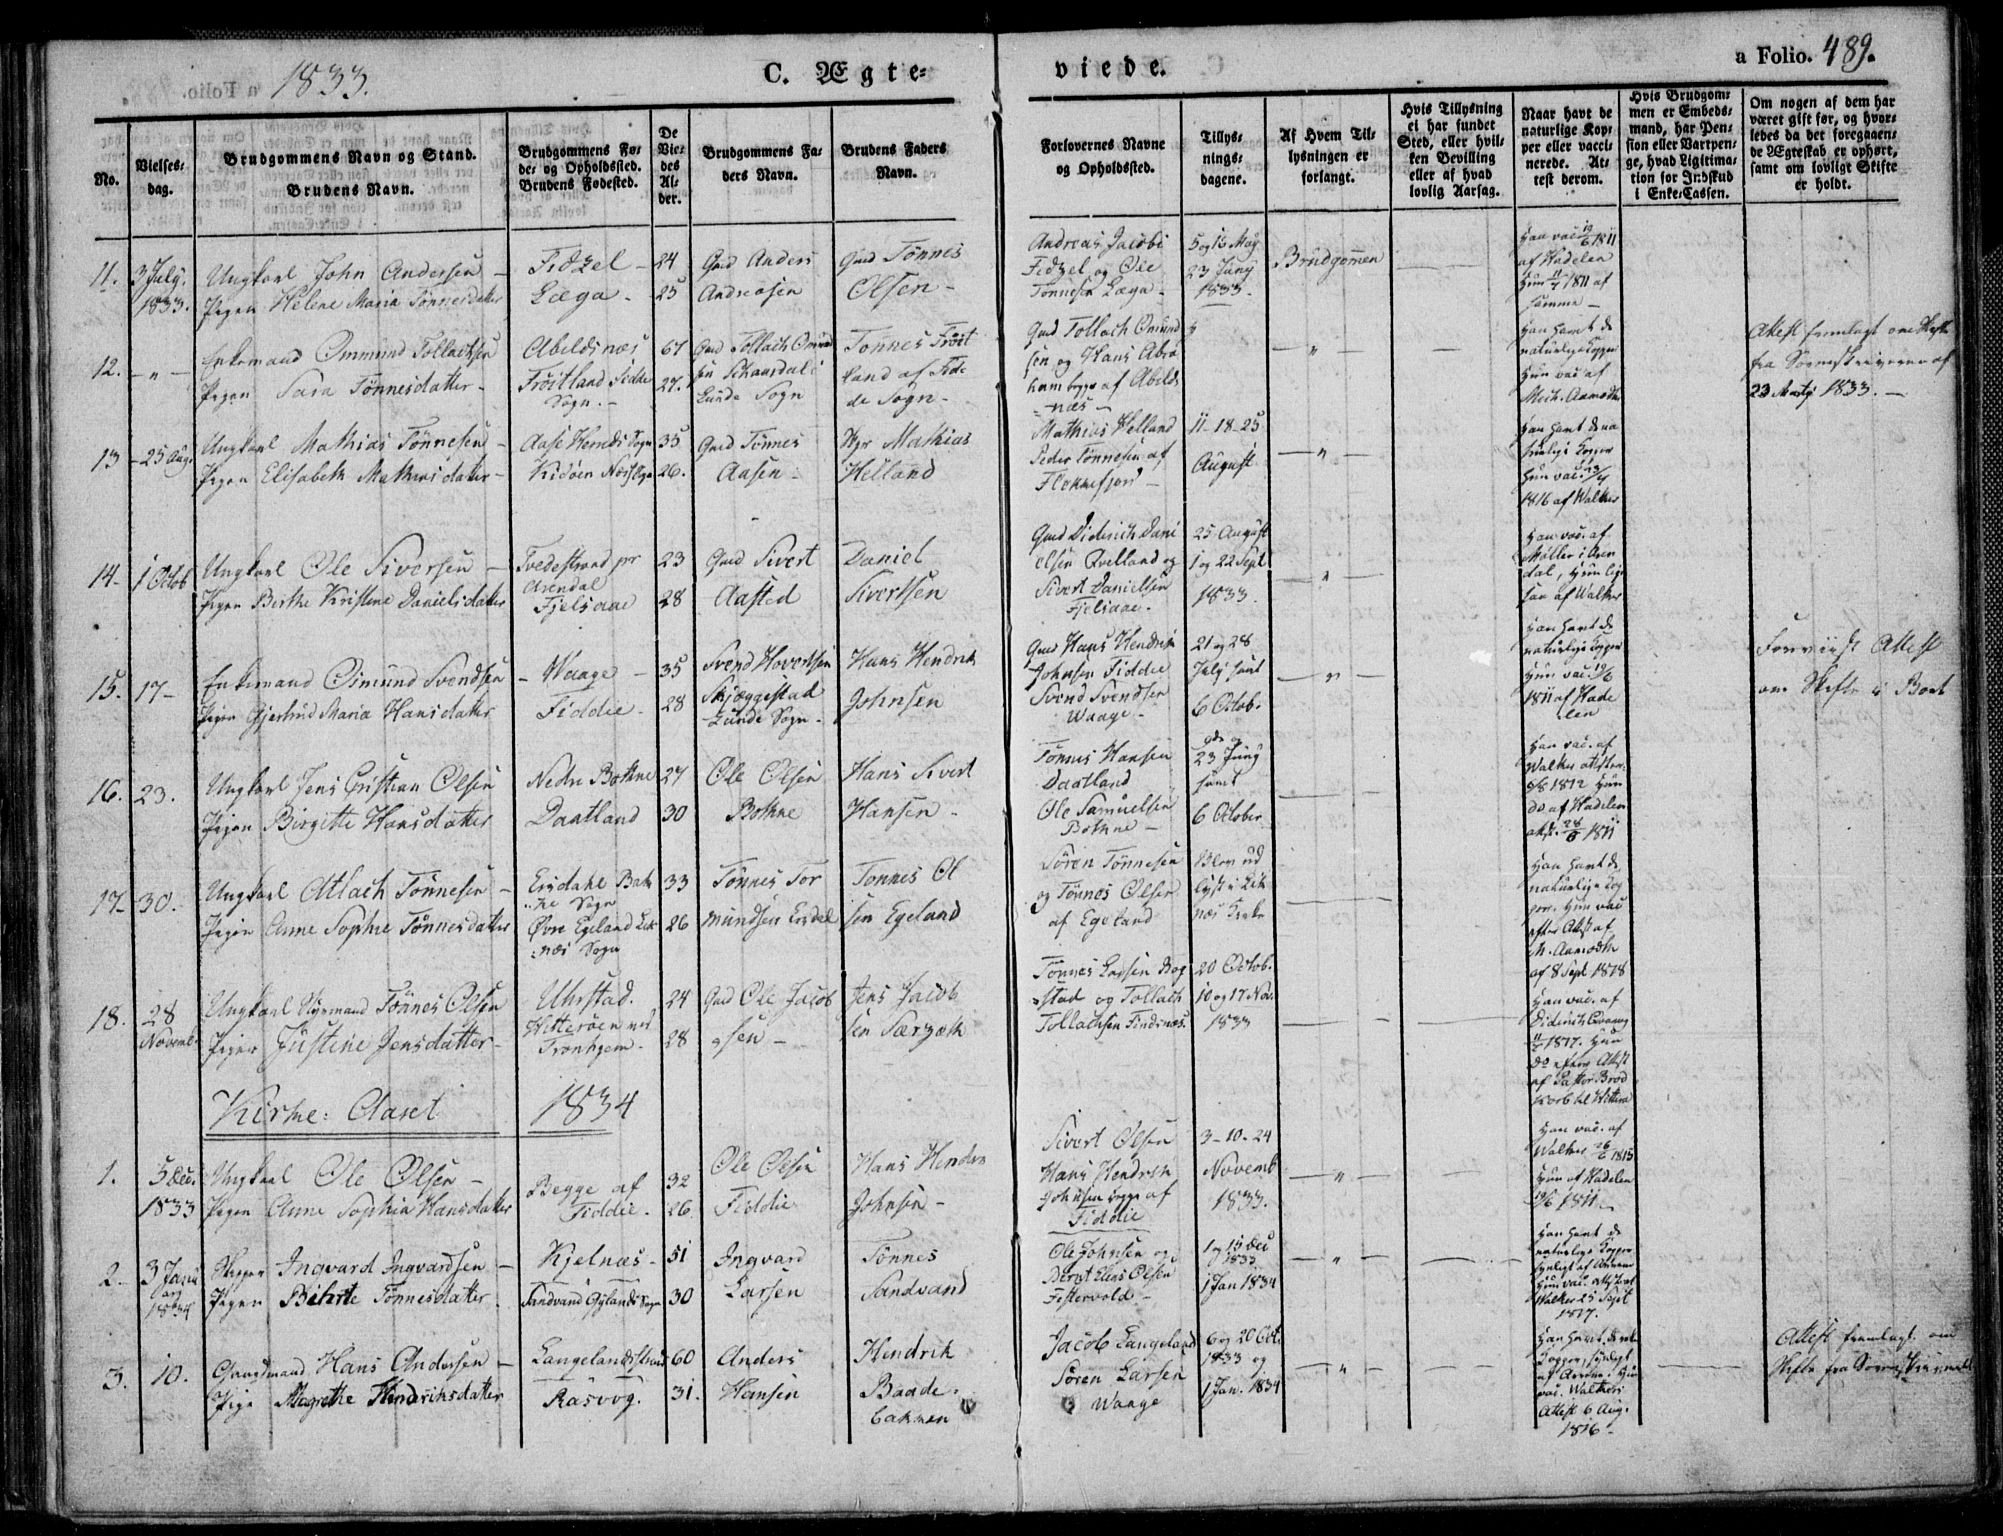 1833.
C. Ægte-
viede.
a Folio. 489.
No.
Vielses-
dag.
Brudgommens Navn og Stand.
Brudens Navn.
Brudgommens Fø-
de- og Opholdssted.
Brudens Fødested.
De
Vie-
des
Al-
der.
Brudgommens Fa-
ders Navn.
Brudens Faders
Navn.
Forlovernes Navne
og Opholdssted.
Tillys-
nings-
dagene.
Af Hvem Til-
lysningen er
forlangt.
Hvis Tillysning
ei har fundet
Sted, eller hvil-
ken Bevilling
eller af hvad
lovlig Aarsag.
Naar havt de
naturlige Kop-
per eller vacci-
nerede. At-
test derom.
Hvis Brudgom-
men er Embeds-
mand, har Pen-
sion eller Vartpen-
ge, hvad Ligitima-
tion for Indskud
i Enke-Cassen.
Om nogen af dem har
været gift før, og hvor-
ledes da det foregaaen-
de Ægteskab er ophørt,
samt om lovligt Skifte
er holdt.
11. 3 July. 1833.
Ungkarl John Andersen
Pigen Helene Maria Tønnesdatter
Fidzel
Læga
24
25
Gmd Anders
Andreasen
Gmd Tønnes
Olsen
Andreas Jacobs
Fedzel og Ole
Tønnesen Læga
5 og 16 May
23 Juny
1833.
Brudgommen
Han vac. 19/6 1811
af Hadelen
Hun 11/7 1811 af
samme
12. - " -
Enkemand Ommund Tollachsen
Pigen Sara Tønnesdatter
Abildsnes
Frøitland Fidde
Sogn.
67
27.
Gmd Tollach Omund
sen Schaardal i
Lunde Sogn
Tonnes Frøit
land af Fid
de Sogn
Gmd Tollach Omund
sen og Hans Abra
ham begge af Abild
næs
"
Han havt de
naturlige Kopper
Hun vac af
Mich. Aamodth
Attest fremlagt om Skifte
fra Sorenskriveren af
23 Marty 1833.
13 25 Aug.
Ungkarl Mathias Tønnesen
Pigen Elisabeth Mathiasdatter
Aase Herrds Sogn
Kidøen
35
26.
Gmd Tønnes
Aasen
Mathias
Helland
Mathias Helland
Peder Tønnesen af
Flekkefjord
11-18-25
August
"
Han havt de na
turlige Kopper
Hun vac.
1816 af Walker
14. 1 Octob
Ungkarl Ole Siversen
Pigen Berthe Kristine Danielsdatter
Tvedestrand pr
Arendal
Fjelsaae
23
28
Gmd Sivert
Aasted
Daniel
Sivertsen
Gmd Diderich Dani
elsen Qvelland og
Sivert Danielsen
Fjelsaae.
25 August
1 og 22 Sept
1833.
"
Han vac. af
Møller i Aren
dal, Hun lige
saa af Walker
15. 17
Enkemand Omund Svendsen
Pigen Gjertrud Maria Hansdatter
Waage
Fiddie.
35
28
Svend Hovertsen
Skjæggestad
Lunde Sogn
Hans Hendrik
Johnsen
Gmd Hans Hendrik
Johnsen Fiddie
Svend Svendsen
Waage
21 og 28
July samt
6 Octob.
"
Han havt de
naturlige Kopper
Hun vac. 19/6
1811 af Hade
len
Foreviist Attest
om Skifte i Boet
16. 23.
Ungkarl Jens Cristian Olsen
Pigen Birgitte Hansdatter
Nedre Bothne
Daatland
27
30
Ole Olsen
Bothne
Hans Sivert
Hansen
Tønnes Hansen
Daatland
Ole Samuelsen
Bothne
23 Juny
samt
6 October
Han vac. af
Walker attster.
1812 Hun
do af Hadelen
attst. 28/6 1811
17. 30.
Ungkarl Atlach Tønnesen
Pigen Anne Sophie Tønnesdatter
Ersdahl Bak
ke Sogn
Øvre Egeland Lik
næs Sogn
33
26
Tønnes Tor
mundsen Ersdal
Tonnes Ol
sen Egeland
Søren Tønnesen
og Tønnes Olsen
af Egeland
Blev ud
lyst i Lik
næs Kirke
Han havt de
naturlige Kop
per. Hun vac
efter Attst af
M. Aamodth
af 8 Sept 1818
18. 28
Novemb.
Ungkarl Styrmand Tønnes Olsen
Pigen Justine Jensdatter
Uhrstad.
Hitterøen ved
Tronhjem.
24
28
Gmd Ole Jacob
sen
Jens Jacob
sen
Tønnes Larsen Rog
stad og Tollach
Tollachsen Findsnæs.
20 Octob.
10 og 17 Nov.
1833
Han vac. af
Diderich
1817. Hun
do efter Attst
af Pastor Brod
korb til Hitteröe
Kirke-Aaret 1834
1. 5 Dec.
1833
Ungkarl Ole Olsen
Pigen Anne Sophia Hansdatter
Begge af
Fiddie.
32
26.
Ole Olsen
Fiddie
Hans Hendr
Johnsen
Sivert Olsen
Hans Hendrik
Johnsen begge af
Fiddie
3-10-24
Novemb
1833.
"
Han vac. af
Walker 26/6 1815
Hun af Hadelen
19/6 1811
2. 3 Janu
ary
1834
Skipper Ingvard Ingvardsen
Pigen Behrte Tønnesdatter
Kjelnæs
Sandvand Gylands Sogn
51
30
Ingvard
Larsen
Tønnes
Sandvand
Ole Johnsen og
Bernt Elias Olsen
Festervold
1 og 15 Dec
1833
1 Jan 1834
"
Han havt de
naturlige Kopper
synligt af Arrene
Hun vac. attstert
Walker 25 Sept
1817.
3. 10.
Gaardmand Hans Andersen
Pige Magrethe Hendriksdatter
Langelandsstrand
Rasvog.
60
31.
Anders
Hansen
Hendrik
Baade-
bakken
Jacob Langeland
Søren Larsen
Waage
6 og 20 Oct.
1833 og
1 Jan. 1834
"
Han havt de nat.
Kopper, synligt
af Arrene. Hun
vac. Walkers
Attest 6 Aug.
1816
Attest fremlagt om
Skifte fra Sorenskriveren